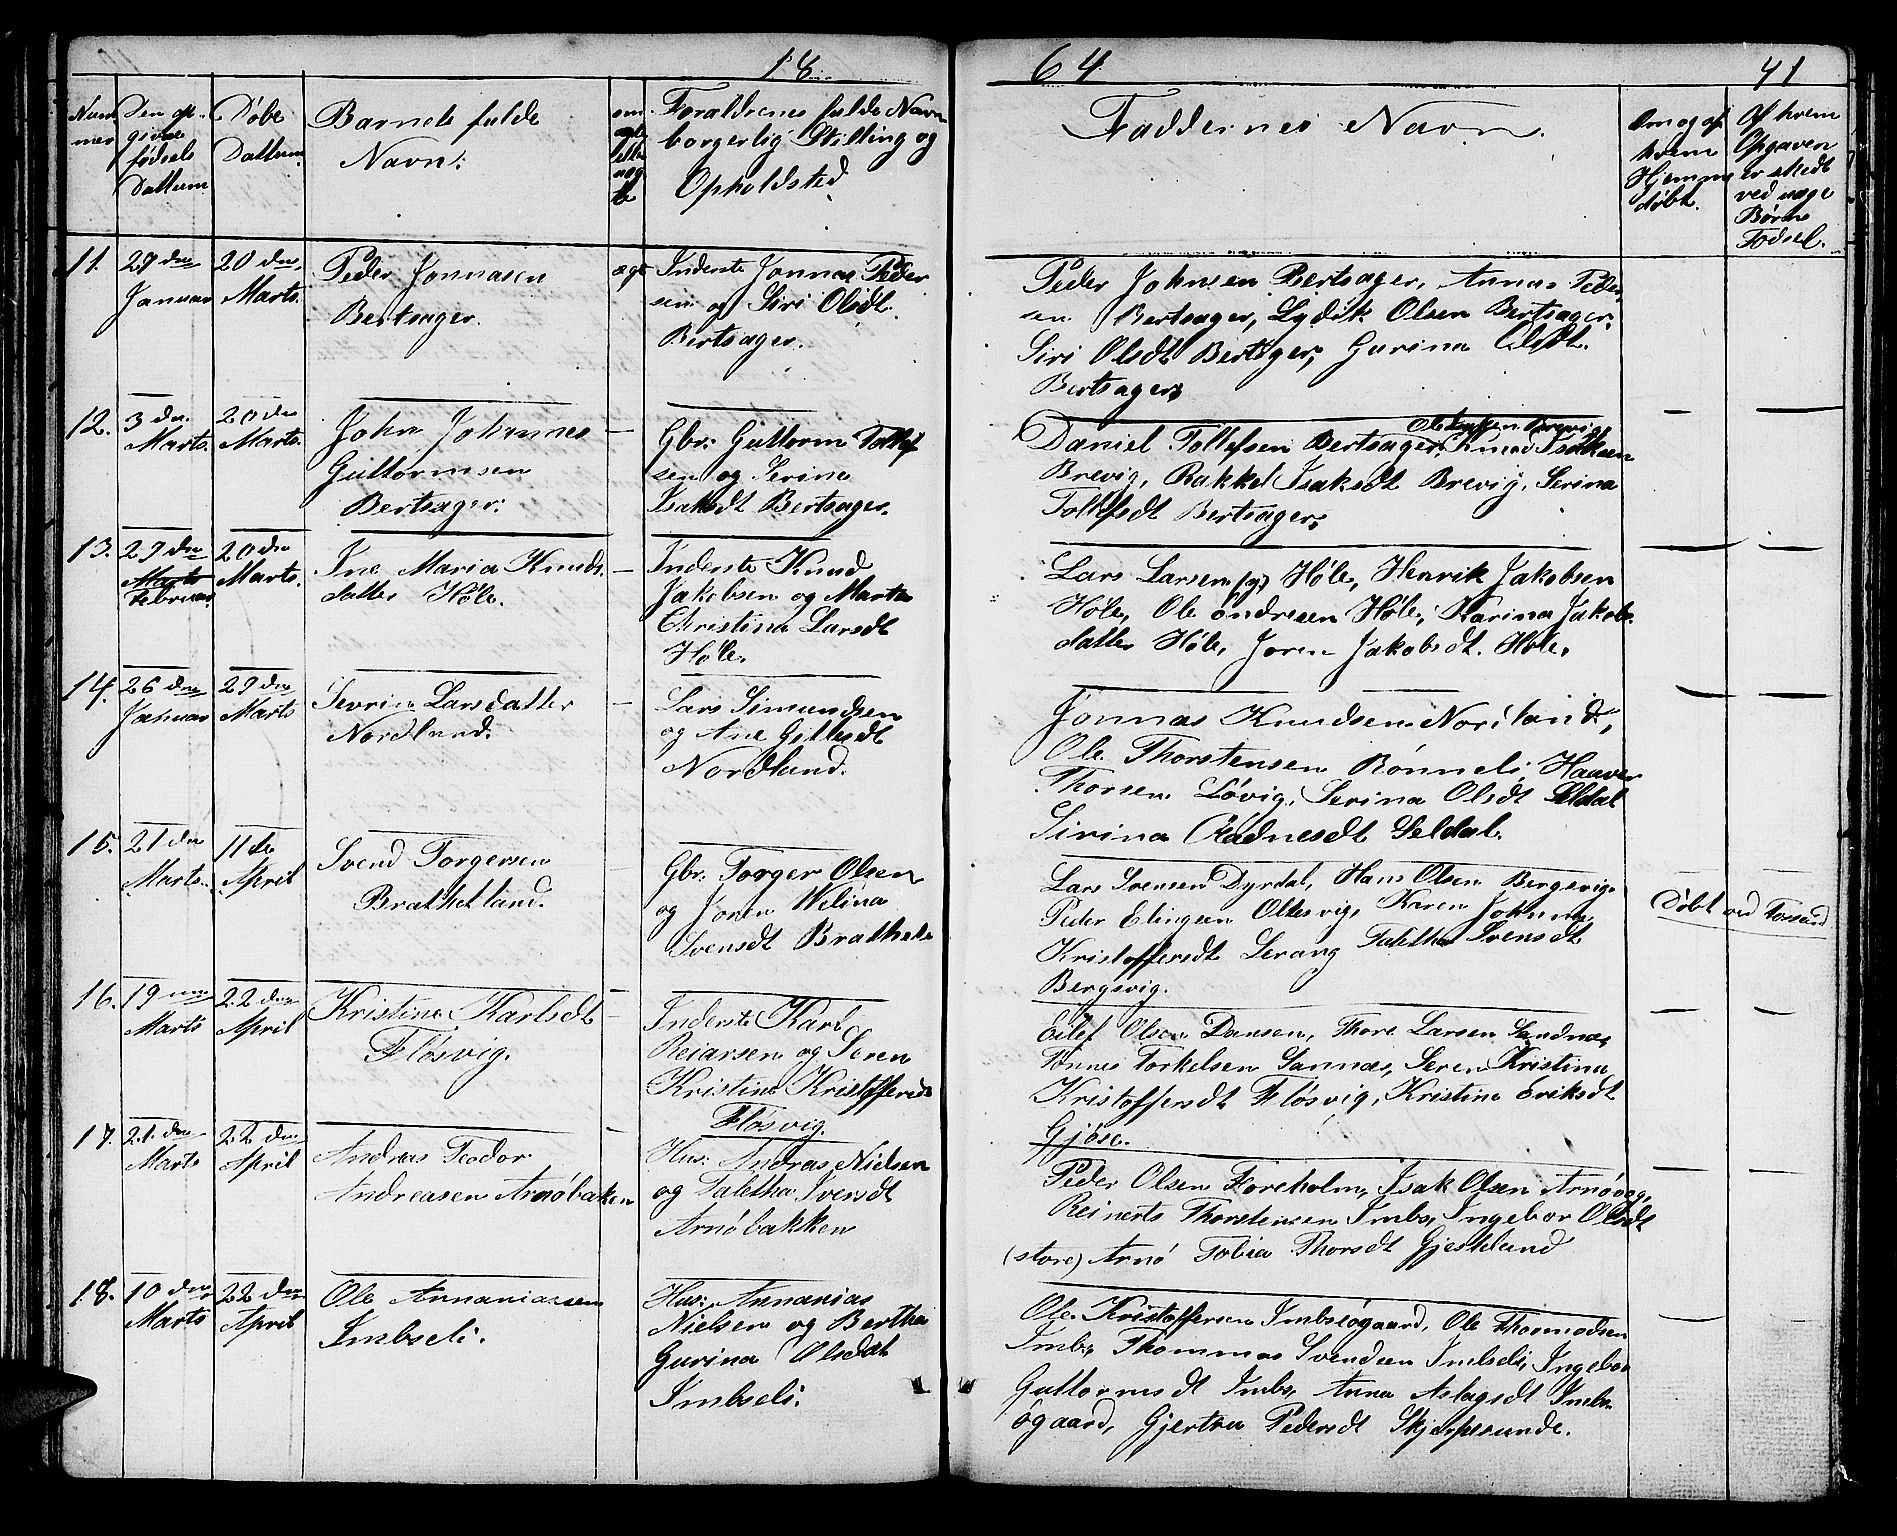 18
64
41
Num
mer
Den op-
givne
fødsels
Dattum
Døbe
Dattum.
Barnets fulde
Navn:
om
ægte
eller
uæg
te
Foraldrenes fulde Navn
borgerlig Stilling og
Opholdsted
Faddernes Navn.
Om og af
hvem
Hjemme
døbt.
Af hvem
Opgaven
er skedt
ved uæge
Børns
Fødsel.
11.
27 den
Januar
20 den
Marts.
Peder Jonnasen
Bertsager.
ægt
Inderste Jonnas Peder
sen og Siri Olsdt.
Bertsager.
Peder Johnsen Bertsager, Annas Peder
sen Bertsager, Lydik Olsen Bertsager.
Siri Olsdt Bertsger, Gurina Olsdt.
Bertsager;
12.
3 den.
Marts.
20 den
Marts.
John Johannes
Guttormsen
Bertsager:
—
Gbr: Guttorm Tollef
sen og Serine
Isaksdt Bertsager.
Brevig
Daniel Tollefsen Bertsager, Knud Isaksen
Brevig, Rakkel Isaksdt Brevig, Serina
Tollefsdt Bertsager;
13.
29 den
Marts
Februar
20 den
Marts.
Ine Maria Knuds
datter Høle.
—
Inderste Knud
Jakobsen og Marta
Christina Larsdt
Høle.
Lars Larsen (yg) Høle, Henrik Jakobsen
Høle, Ole Andresen Høle, Karina Jakobs
datter Høle, Joren Jakobsdt. Høle.
14.
26 den
Januar
29 den
Marts
Sevrine Larsdatter
Nordland.
—
Lars Simundsen
og Ane Gittlesdt
Nordland.
Jonnas Knudsen Nordland,
Ole Thorstensen Rønneli, Haaver
Thorsen Løvig, Serina Olsdt Seldal
Sirina Aadnesdt Seldal.
15.
21 den
Marts.
11 te
April
Svend Torgersen
Brattetland.
Gbr: Torger Olsen
og Joren Welina
Svensdt Brathetl
Lars Svensen Dyrdal, Hans Olsen Bergsvig
Peder Elingsen Oltesvig, Karen Johnna
Kristoffersdt Lerang Taletha Svensdt
Bergsvig.
Døbt ved Forsand
16.
19 nne
Marts
22 den
April
Kristine Karlsdt
Fløsvig.
—
Inderste Karl
Reiarsen og Seren
Kristine Kristoffersdt
Fløsvig.
Eilef Olsen Dansen, Thore Larsen Sandnæs,
Tønnes Torkelsen Sannæs, Seren Kristina
Kristoffersdt Fløsvig, Kristine Eriksdt
Gjøse.
17.
21. den
Marts
22 den
April
Andras Teodor
Andreasen Arnøbaken
—
Hus: Andras Nielsen
og Taletha Svensdt
Arnøbakken
Peder Olsen Foreholm, Isak Olsen Arnøvag,
Reinerts Thorstensen Imbs, Ingebor Olsdt
(store) Arnø Tobia Thorsdt Gjesteland
18.
10 den
Marts
22 den
April
Ole Annaniassen
Imbseli.
Hus: Annanias
Nielsen og Bertha
Gurina Olsdat
Imbseli:
Ole Kristoffersen Imbsøgaard, Ole Thormodsen
Imbs, Thommas Svendsen Imbseli, Ingebor
Guttormsdt Imbs, Anna Aslagsdt Imbs
øgaard, Gjertru Pedersdt Skjæpesunde.